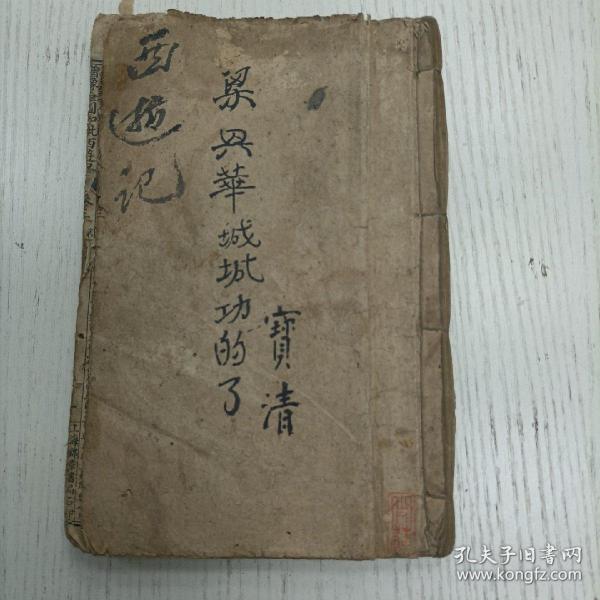 西遊记
梁兴華城城功的了
寶清
孔夫子旧书网
www.kongfz.com